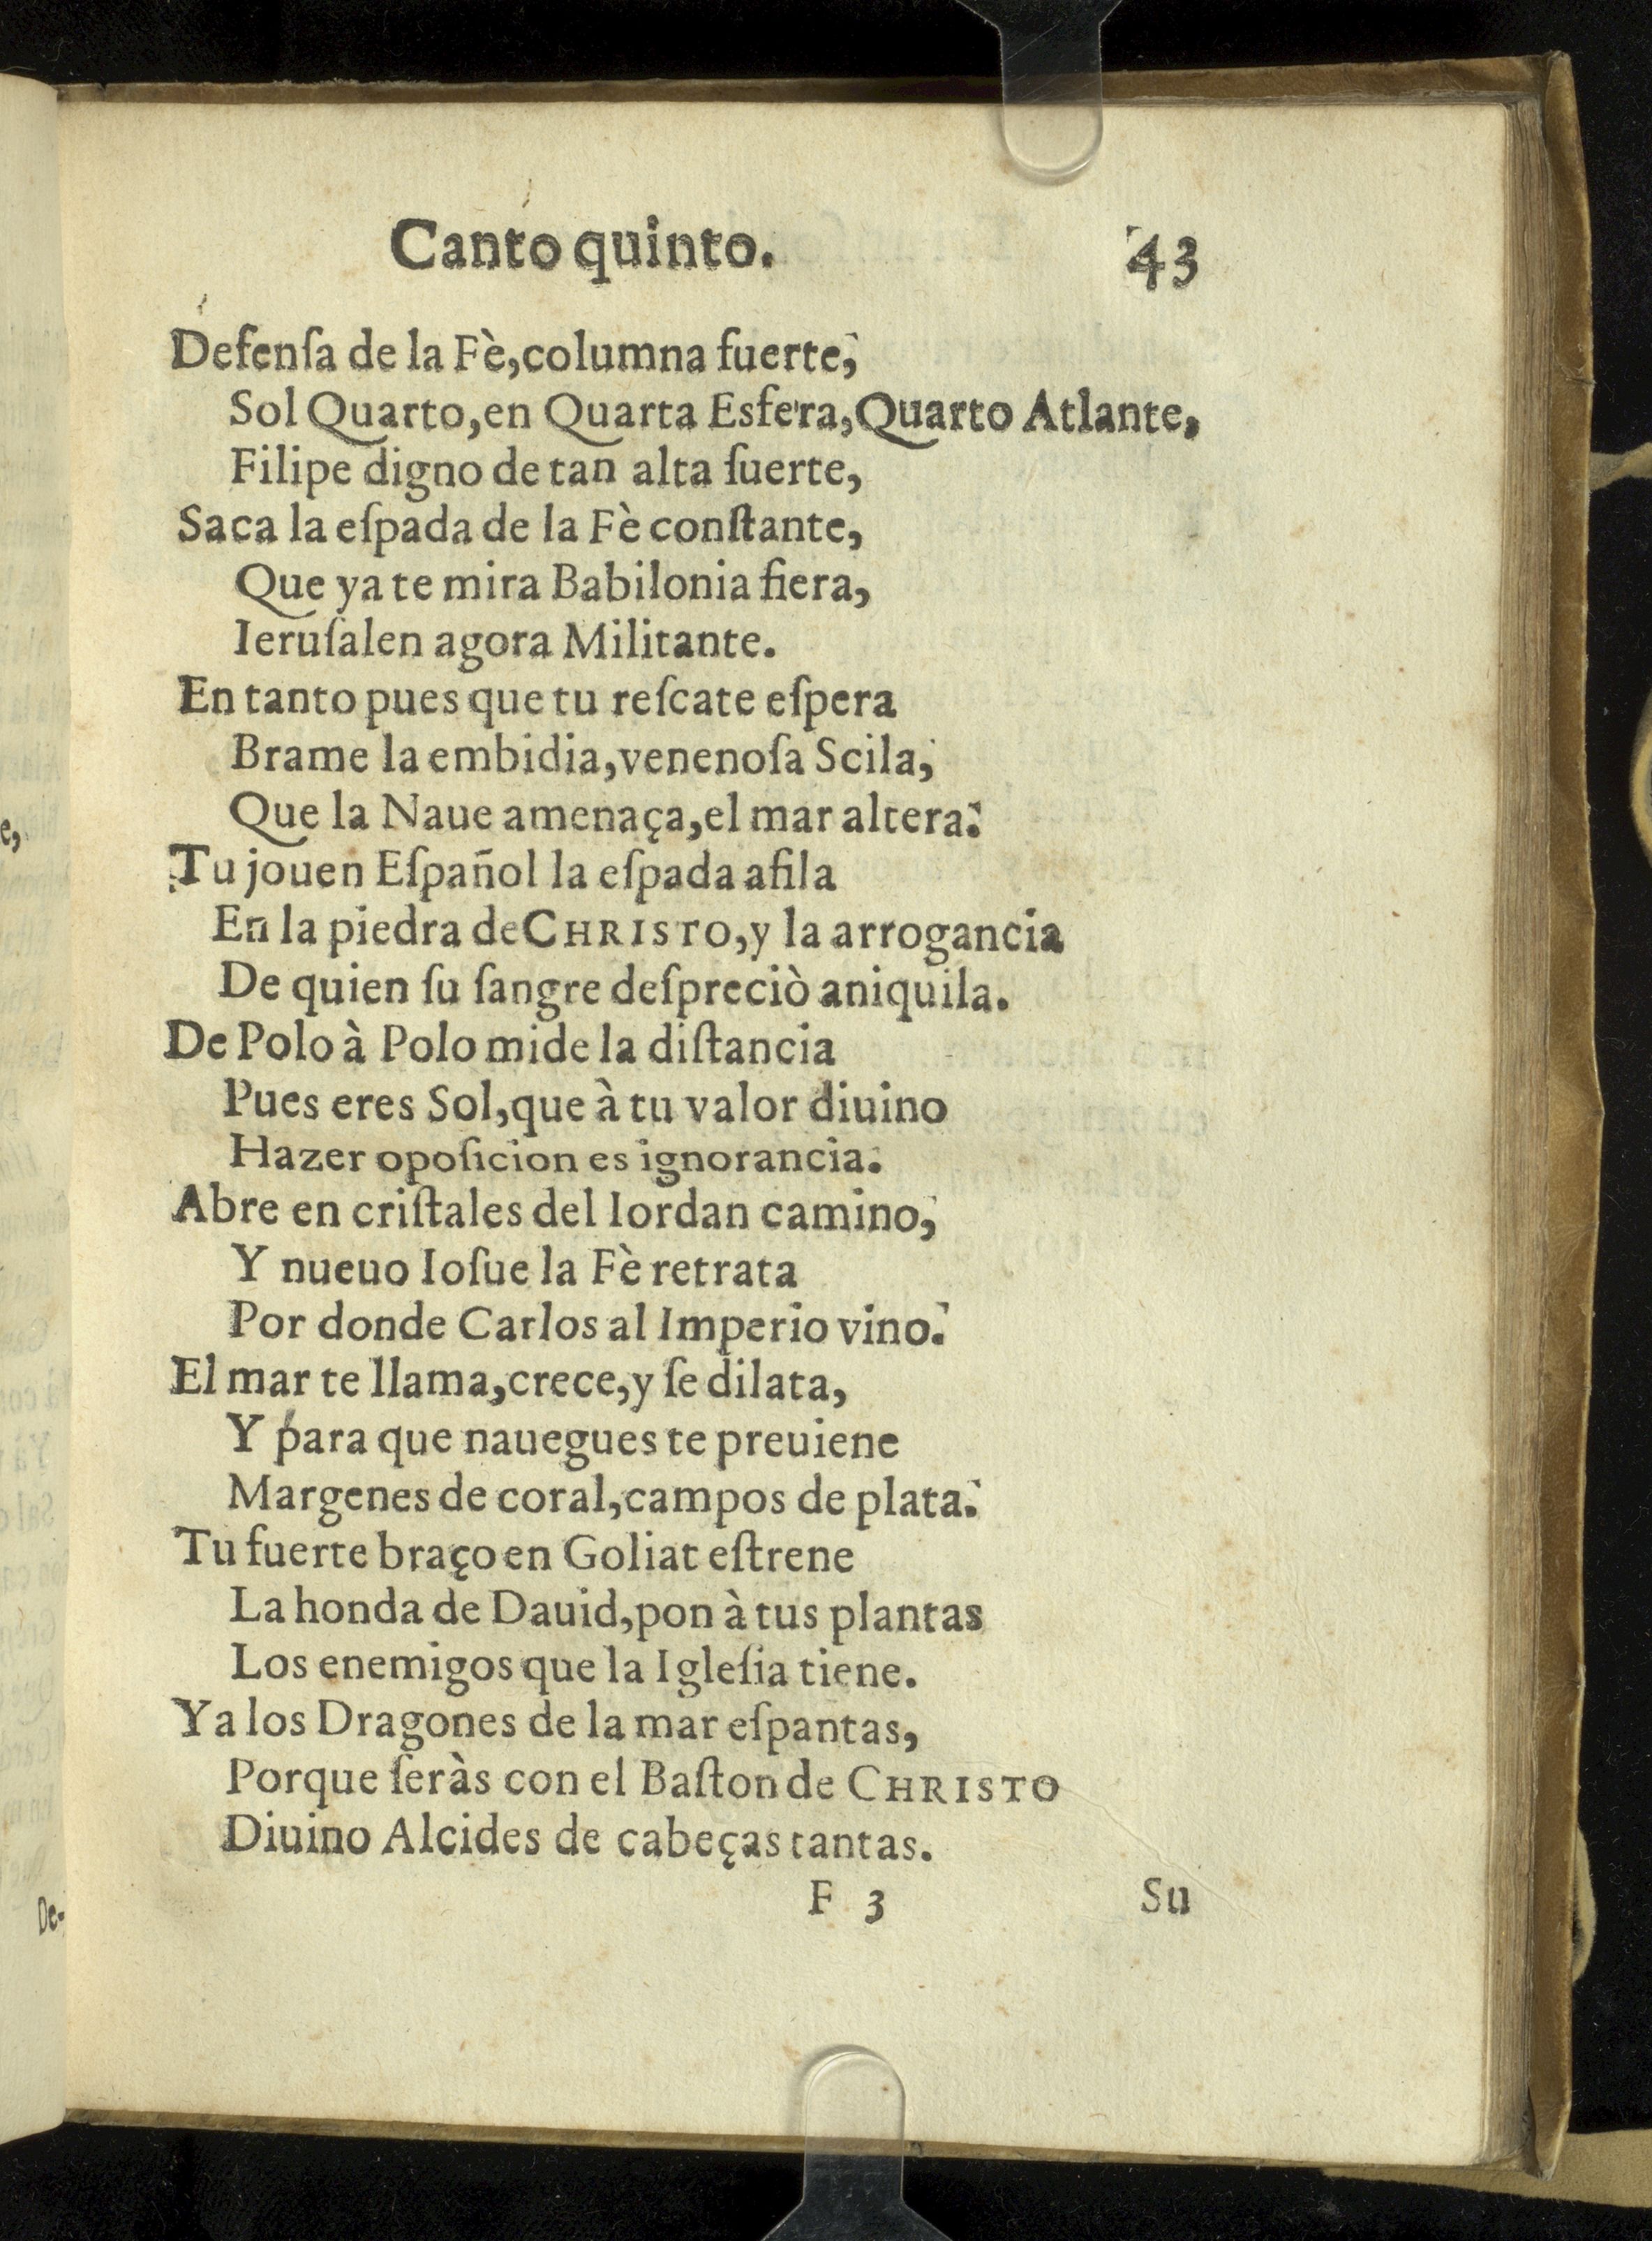 Canto quinto. 43
Defenſa de la Fè,columna fuerte,
Sol Quarto,en Quarta Esfera,Quarto Atlante,
Filipe digno de tan alta ſuerte,
Saca la eſpada de la Fè conſtante,
Que ya te mira Babilonia fiera,
Ieruſalen agora Militante.
En tanto pues que tu reſcate eſpera
Brame la embidia,venenoſa Scila,
Que la Naue amenaça,el mar altera.
Tu jouen Eſpañol la eſpada afila
En la piedra de CHRISTO,y la arrogancia
De quien ſu ſangre deſpreciò aniquila.
De Polo à Polo mide la diſtancia
Pues eres Sol,que à tu valor diuino
Hazer opoſicion es ignorancia.
Abre en criſtales del Iordan camino,
Y nueuo Ioſue la Fè retrata
Por donde Carlos al Imperio vino.
El mar te llama,crece,y ſe dilata,
Y para que nauegues te preuiene
Margenes de coral,campos de plata.
Tu fuerte braço en Goliat eſtrene
La honda de Dauid,pon à tus plantas
Los enemigos que la Igleſia tiene.
Ya los Dragones de la mar eſpantas,
Porque ſeràs con el Baſton de CHRISTO
Diuino Alcides de cabeças tantas.
F 3 Su
De-